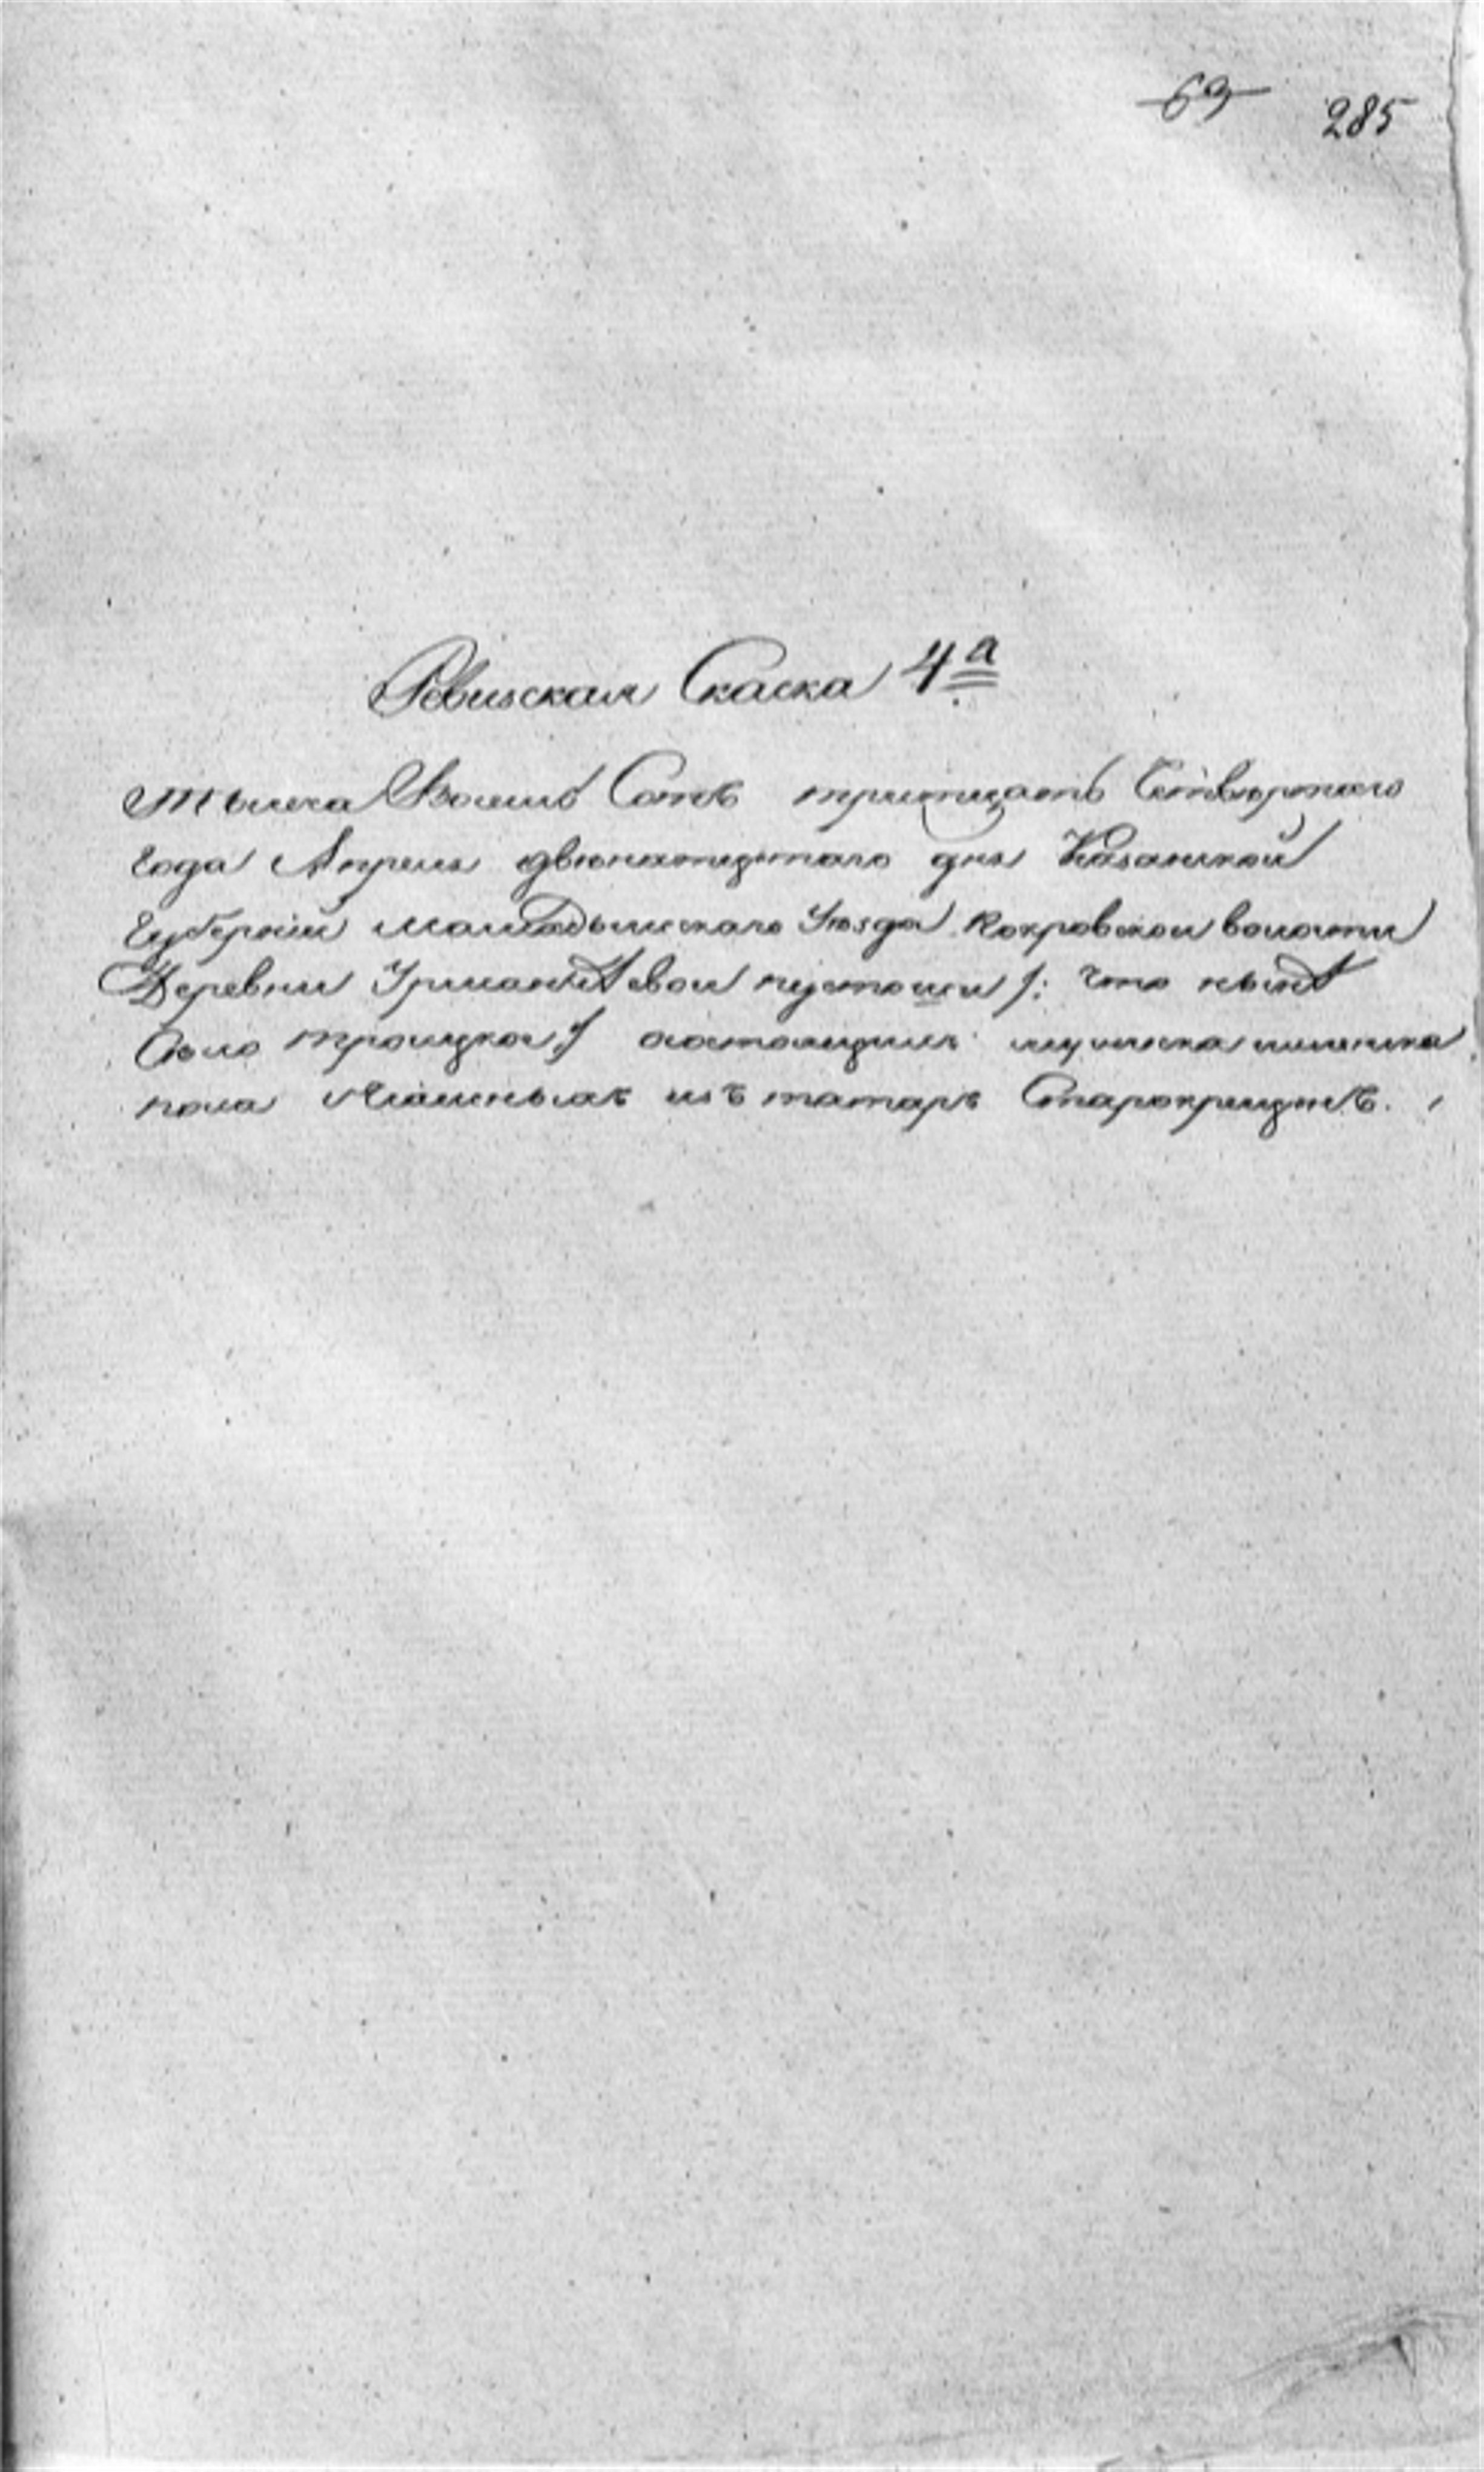 69 285
Ревиская Скаска 4а
тысеча Восемь Сотъ тритцать Четвертаго
Года Апреля двенатцатаго дня Казанской
Губернии Мамадышскаго Уезда Покровской волости
Деревни Урманчеевой пустоши /: что ныне
Село троицкое :/ состоящимъ мужеска и женска
пола из татаръ Старокрещенъ.